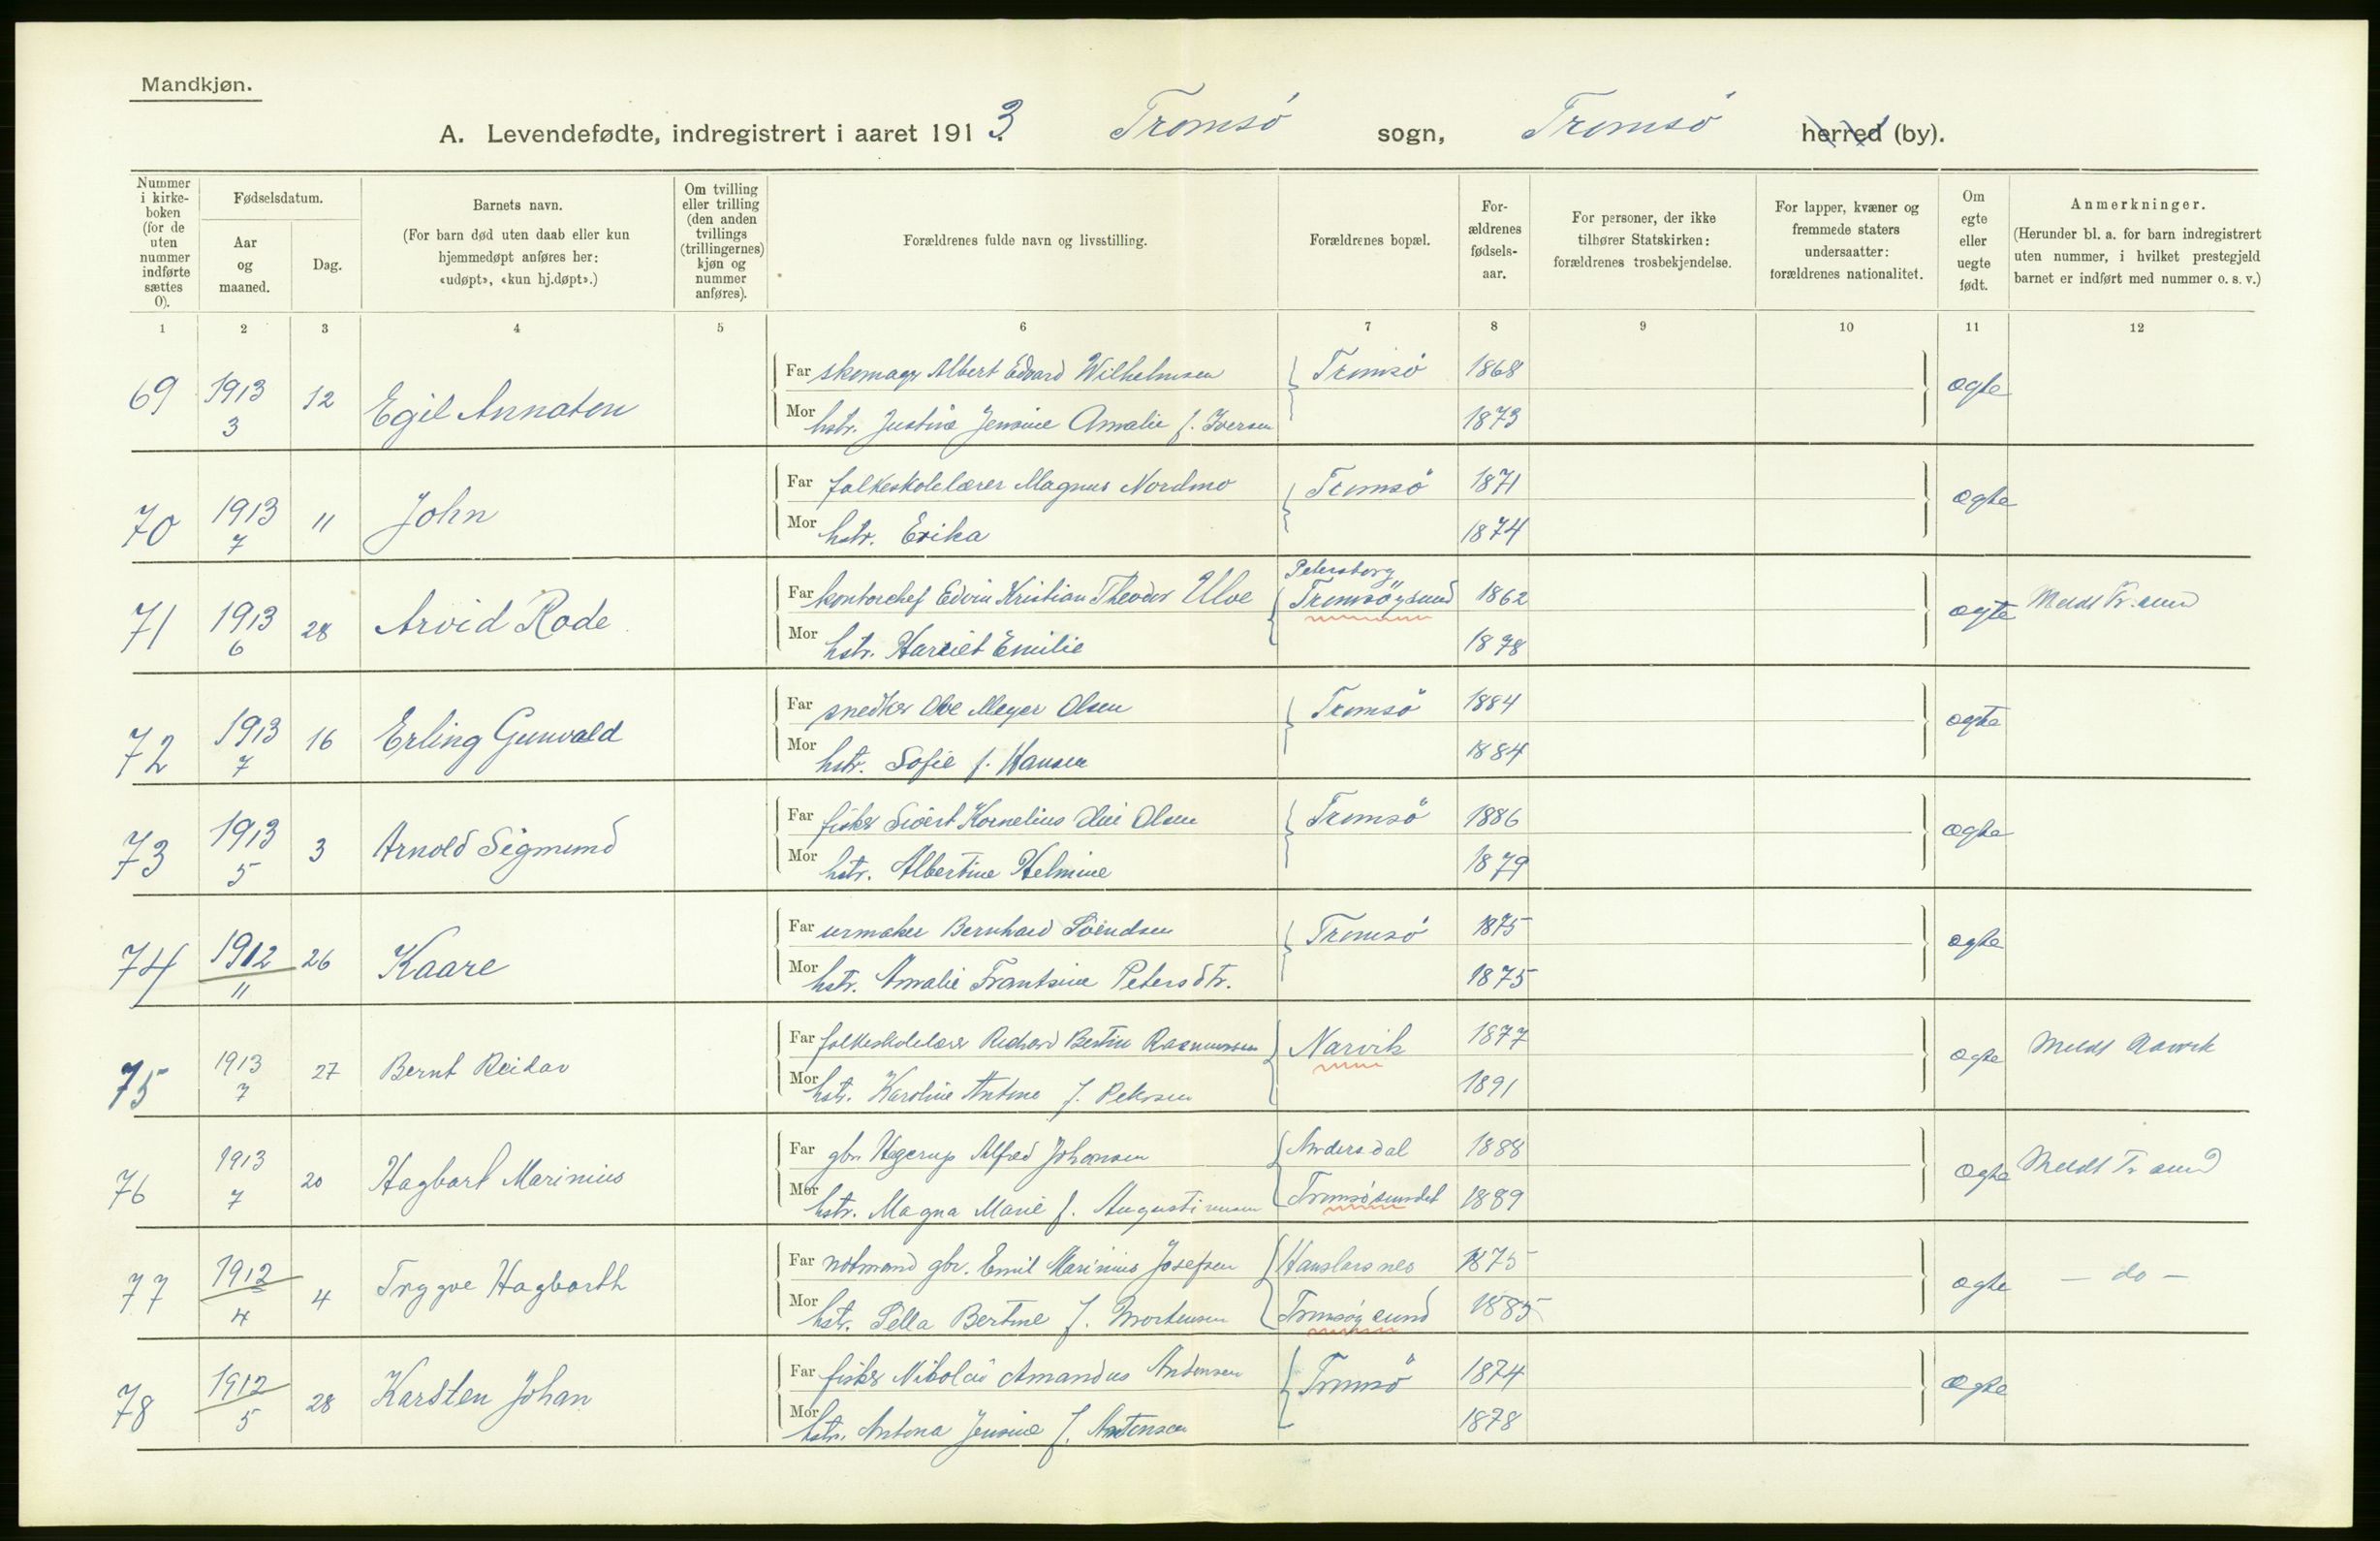 Mandkjøn.
A. Levendefødte, indregistrert i aaret 1913. Tromsö sogn, Tromsö herred (by).
Nummer i kirkeboken (for de uten nummer indførte sættes 0).
Fødselsdatum.
Aar og maaned.
Dag.
Barnets navn.
(For barn død uten daab eller kun hjemmedøpt anføres her: «udøpt», «kun hj.døpt».)
Om tvilling eller trilling (den anden tvillings (trillingernes) kjøn og nummer anføres).
Forældrenes fulde navn og livsstilling.
Forældrenes bopæl.
Forældrenes fødselsaar.
For personer, der ikke tilhører Statskirken: forældrenes trosbekjendelse.
For lapper, kvæner og fremmede staters undersaatter: forældrenes nationalitet.
Om egte eller uegte født.
Anmerkninger.
(Herunder bl. a. for barn indregistrert uten nummer, i hvilket prestegjeld barnet er indført med nummer o. s. v.)
1 2 3 4 5 6 7 8 9 10 11 12
69 1913 3 12 Egil Annaton
Far skomager Albert Edvard Wilhelmsen Tromsö 1868 ægte
Mor hstr. Justine Jensine Amalie f. Iversen 1873
70 1913 7 11 John
Far folkeskolelærer Magnus Nordmo Tromsö 1871 ægte
Mor hstr. Erika 1874
71 1913 6 28 Arvid Rode
Far kontorchef Edvin Kristian Theodor Ulve Petersborg Tromsöysund 1862 ægte Meldt Tr.sund
Mor hstr. Harriet Emilie 1878
72 1913 7 16 Erling Gunvald
Far snedker Ole Meyer Olsen Tromsö 1884 ægte
Mor hstr. Sofie f. Hansen 1884
73 1913 5 3 Arnold Sigmund
Far fisker Sivert Kornelius Olsen Tromsö 1886 ægte
Mor hstr. Albertine Helmine 1879
74 1912 11 26 Kaare
Far urmaker Bernhard Svendsen Tromsö 1875 ægte
Mor hstr. Amalie Frantsine Petersdtr. 1875
75 1913 7 27 Bernt Reidar
Far folkeskolelærer Richard Bertin Rasmussen Narvik 1877 ægte Meldt Narvik
Mor hstr. Karoline Antone f. Petersen 1891
76 1913 7 20 Hagbart Marinius
Far gbr. Hegerup Alfred Johansen Andersdal 1888 ægte Meldt Tr sund
Mor hstr. Magna Marie f. Augustinusen Tromsösundet 1889
77 1912 4 4 Trygve Hagbarth
Far notmand gbr. Emil Marinius Josefsen Hanslarsnes 1875 ægte — do —
Mor hstr. Pella Bertine f. Mortensen Tromsöysund 1885
78 1912 5 28 Karsten Johan
Far fisker Nikolai Amandus Antonsen Tromsö 1874 ægte
Mor hstr. Antona Jensine f. 1878